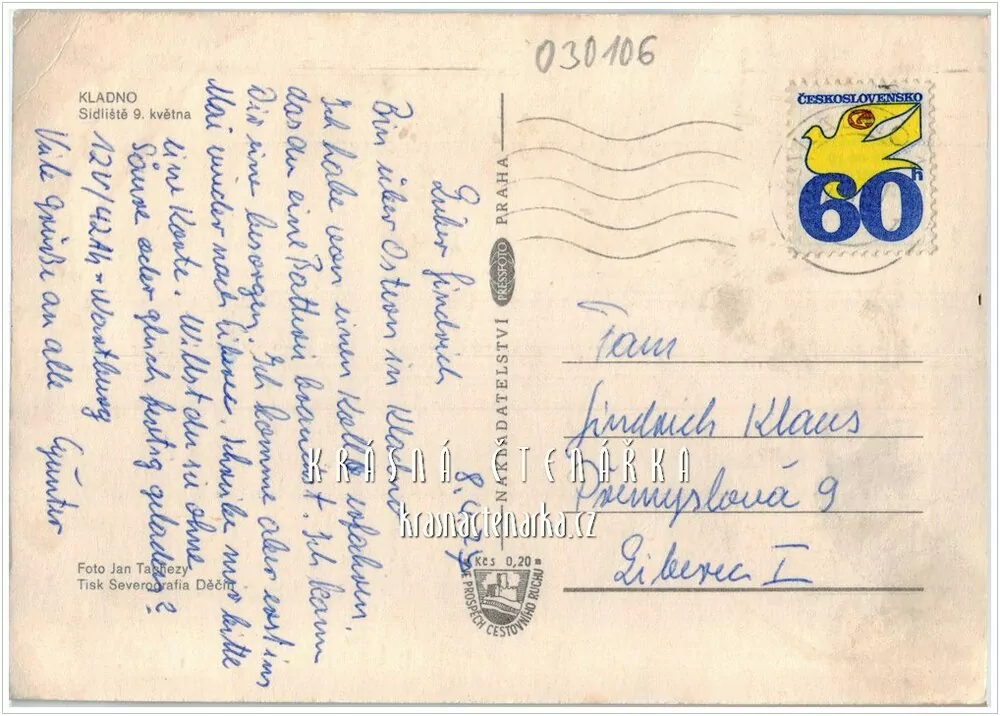 030106
KLADNO
Sídliště 9. května
ČESKOSLOVENSKO
60h
8. 4.
Lieber Jindrich
Bin über Ostern in Kladno
Ich habe von einem erfahren,
das du eine Batteri brauchst. Ich kann
Dir eine besorgen. Ich komme aber erst im
Mai wieder nach Liberec. Schreibe mir bitte
eine Karte. Willst du sie ohne
Säure oder gleich fertig geladen?
12V/42Ah = Wartburg
Viele Grüße an alle Günter
NAKLADATELSTVÍ PRESSFOTO PRAHA
Pam
Jindrich Klaus
Přemyslová 9
Liberec I
KRÁSNÁ ČTENÁŘKA
krasnactenarka.cz
Foto Jan Tachezy
Tisk Severografia Děčín
Kčs 0,20
VE PROSPĚCH CESTOVNÍHO RUCHU